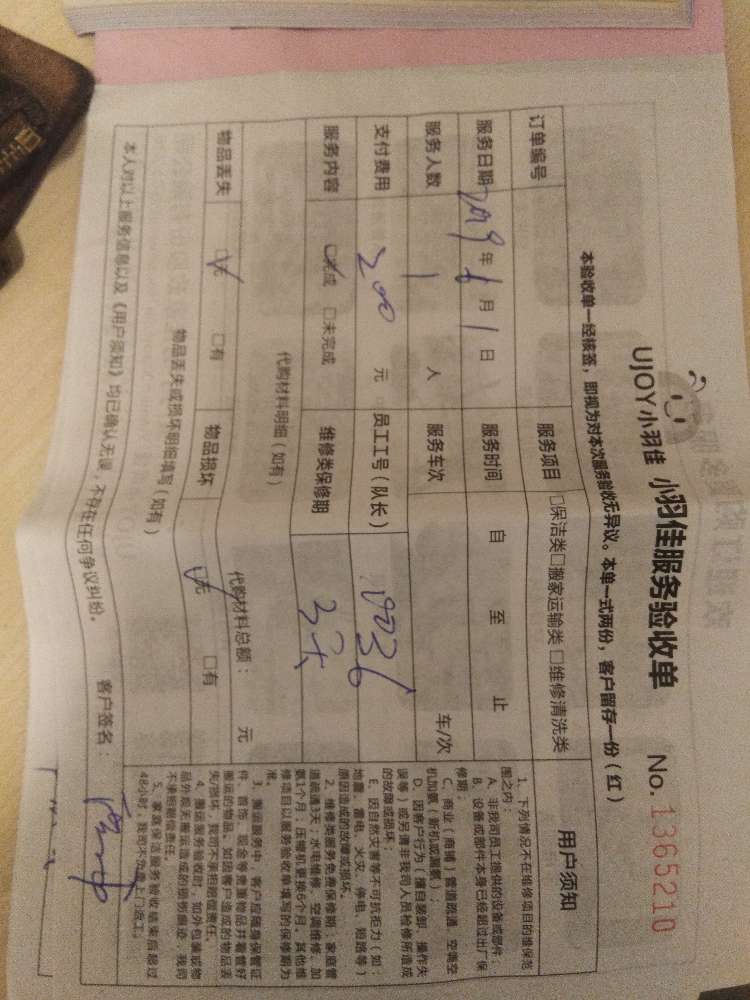 UJOY小羽佳 小羽佳服务验收单 No. 1365210
本验收单一经核签，即视为对本次服务验收无异议。本单一式两份，客户留存一份（红）
订单编号 服务项目 □保洁类□搬家运输类 □维修清洗类
服务日期 2019年6月1日 服务时间 自 至 止
服务人数 1 人 服务车次 车/次
支付费用 200 元 员工工号（队长） 10036
服务内容 □完成 □未完成 维修类保修期 3天
代购材料明细（如有） 代购材料总额： 元
物品丢失 □无 □有 物品损坏 □无 □有
物品丢失或损坏明细填写（如有）
本人对以上服务信息以及《用户须知》均已确认无误，不存在任何争议纠纷。 客户签名：
用户须知
1、下列情况不在维修项目的维保范
围之内：
A、非我司员工提供的设备或部件；
B、设备或部件本身已经超过出厂保
修期；
C、商业（商铺）管道疏通、空调空
机加氨（新机或漏氨）；
D、因客户行为（擅自装卸、操作失
误等）或另请非我司人员维修所造成
的故障或损坏；
E、因自然灾害等不可抗拒力（如：
地震、雷电、火灾、停电、短路等）
原因造成的故障或损坏。
2、维修类服务免费保修期：家庭管
道疏通3天；水电维修、空调维修、加
氨1个月；压缩机更换6个月，其他维
修项目以服务验收单填写的保修期为
准。
3、搬运服务中，客户应随身保管证
件、首饰、现金等贵重物品并看管好
搬运的物品，如因客户造成的物品丢
失/损坏，我司不承担赔偿责任。
4、搬运服务验收时，如外包装或物
品外观无搬运造成的磨损痕迹，我司
不承担赔偿责任。
5、家庭保洁服务验收结束后超过
48小时，我司不负责上门返工。